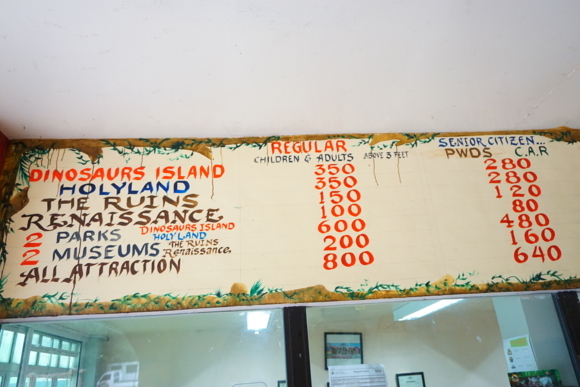 REGULAR SENIOR CITIZEN...
CHILDREN & ADULTS ABOVE 3 FEET PWDS C.A.R
DINOSAURS ISLAND 350 280
HOLYLAND 350 280
THE RUINS 150 120
RENAISSANCE 100 80
2 PARKS DINOSAURS ISLAND HOLYLAND 600 480
2 MUSEUMS THE RUINS Renaissance 200 160
ALL ATTRACTION 800 640